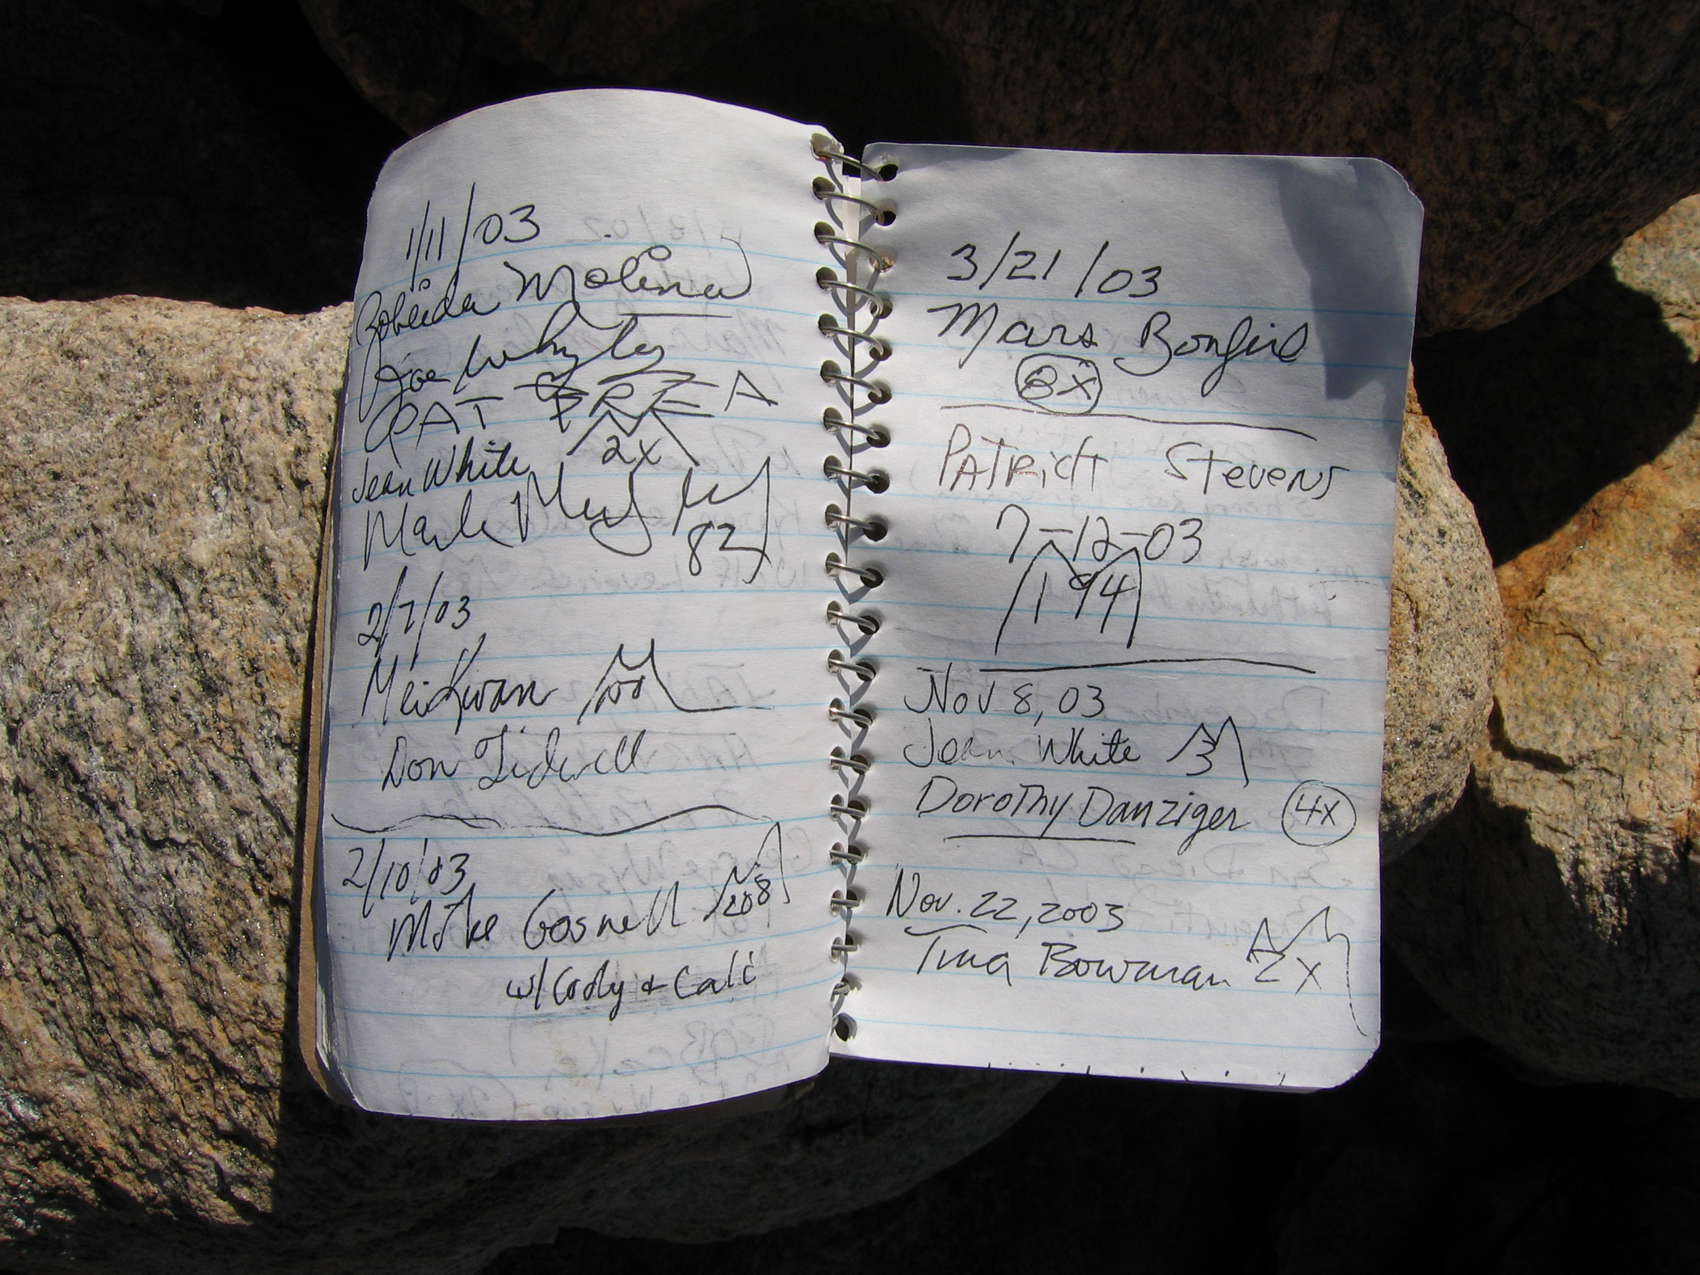 1/11/03
Zobeida Molina
Joe Whyte
PAT BREA
2x
Jean White
Mark
83
2/7/03
Mei Kwan
Don Tidwell
2/10/03
Mike Gosnell 208
w/ Cody + Cali
3/21/03
Mars Bonfire
8x
PATRICK STEVENS
7-12-03
194
Nov 8, 03
Jean White 3
Dorothy Danziger 4x
Nov. 22, 2003
Tina Bowman 2x